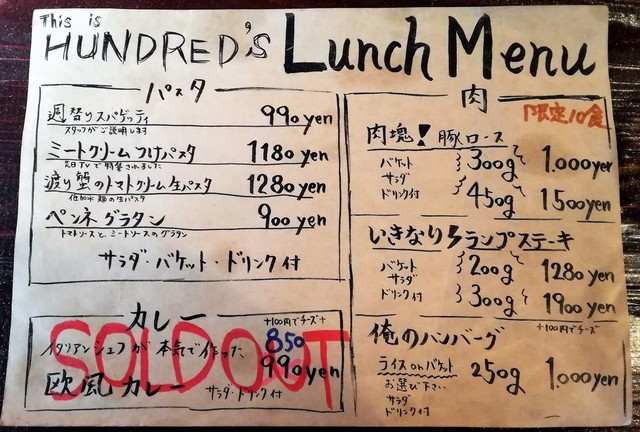 This is
HUNDRED'S Lunch Menu
パスタ
週替りスパゲッティ 990 yen
スタッフがご説明します
ミートクリームつけパスタ 1180 yen
TVで特集されました
渡り蟹のトマトクリーム生パスタ 1280 yen
低加水麺の生パスタ
ペンネグラタン 900 yen
トマトソースと、ミートソースのグラタン
サラダ・バケット・ドリンク付
カレー +100円でチーズ+
イタリアンシェフが本気で作った 850
欧風カレー 990 yen
サラダ・ドリンク付
SOLD OUT
肉
限定10食
肉塊!豚ロース
バケット
サラダ
ドリンク付
300g 1.000 yen
450g 1500 yen
いきなりランプステーキ
バケット
サラダ
ドリンク付
200g 1280 yen
300g 1900 yen
+100円でチーズ
俺のハンバーグ
ライス or バケット
お選び下さい
サラダ
ドリンク付
250g 1.000 yen